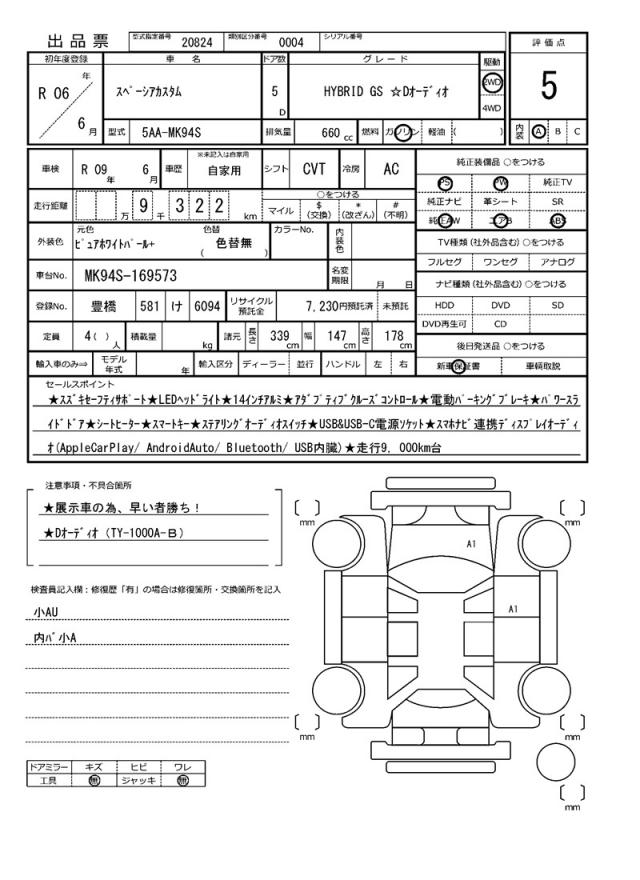 出品票
型式指定番号 20824 類別区分番号 0004 シリアル番号
評価点
5
初年度登録 車名 ドア数 グレード 駆動
R 06 年 6 月
スペーシアカスタム 5 D HYBRID GS ☆Dオーディオ 2WD 4WD
型式 5AA-MK94S 排気量 660 cc 燃料 ガソリン 軽油 ( )
内装 A B C
車検 R 09 年 6 月 車歴 ※未記入は自家用 自家用 シフト CVT 冷房 AC
純正装備品 ○をつける
PS PW 純正TV
純正ナビ 革シート SR
純正AW エアB ABS
走行距離 万 9 千 3 2 2 km
○をつける
マイル $ (交換) * (改ざん) # (不明)
外装色 元色 ピュアホワイトパール+ 色替 ( 色替無 ) カラーNo. 内装色
TV種類 (社外品含む) ○をつける
フルセグ ワンセグ アナログ
車台No. MK94S-169573 名変期限 月 日
ナビ種類 (社外品含む) ○をつける
登録No. 豊橋 581 け 6094 リサイクル預託金 7,230円預託済 未預託
HDD DVD SD
DVD再生可 CD
定員 4( ) 人 積載量 kg 諸元 長さ 339 cm 幅 147 cm 高さ 178 cm
後日発送品 ○をつける
輸入車のみ⇒ モデル年式 年 輸入区分 ディーラー 並行 ハンドル 左 右
新車保証書 車輌取説
セールスポイント
★スズキセーフティサポート★LEDヘッドライト★14インチアルミ★アダプティブクルーズコントロール★電動パーキングブレーキ★パワースラ
イドドア★シートヒーター★スマートキー★ステアリングオーディオスイッチ★USB&USB-C電源ソケット★スマホナビ連携ディスプレイオーディ
オ(AppleCarPlay/ AndroidAuto/ Bluetooth/ USB内臓)★走行9, 000km台
注意事項・不具合箇所
★展示車の為、早い者勝ち！
★Dオーディオ (TY-1000A-B)
検査員記入欄：修復歴「有」の場合は修復箇所・交換箇所を記入
小AU
内バ小A
[ ] mm
[ ] mm
A1
A1
[ ] mm
[ ] mm
[ ] mm
ドアミラー キズ ヒビ ワレ
工具 無 ジャッキ 無